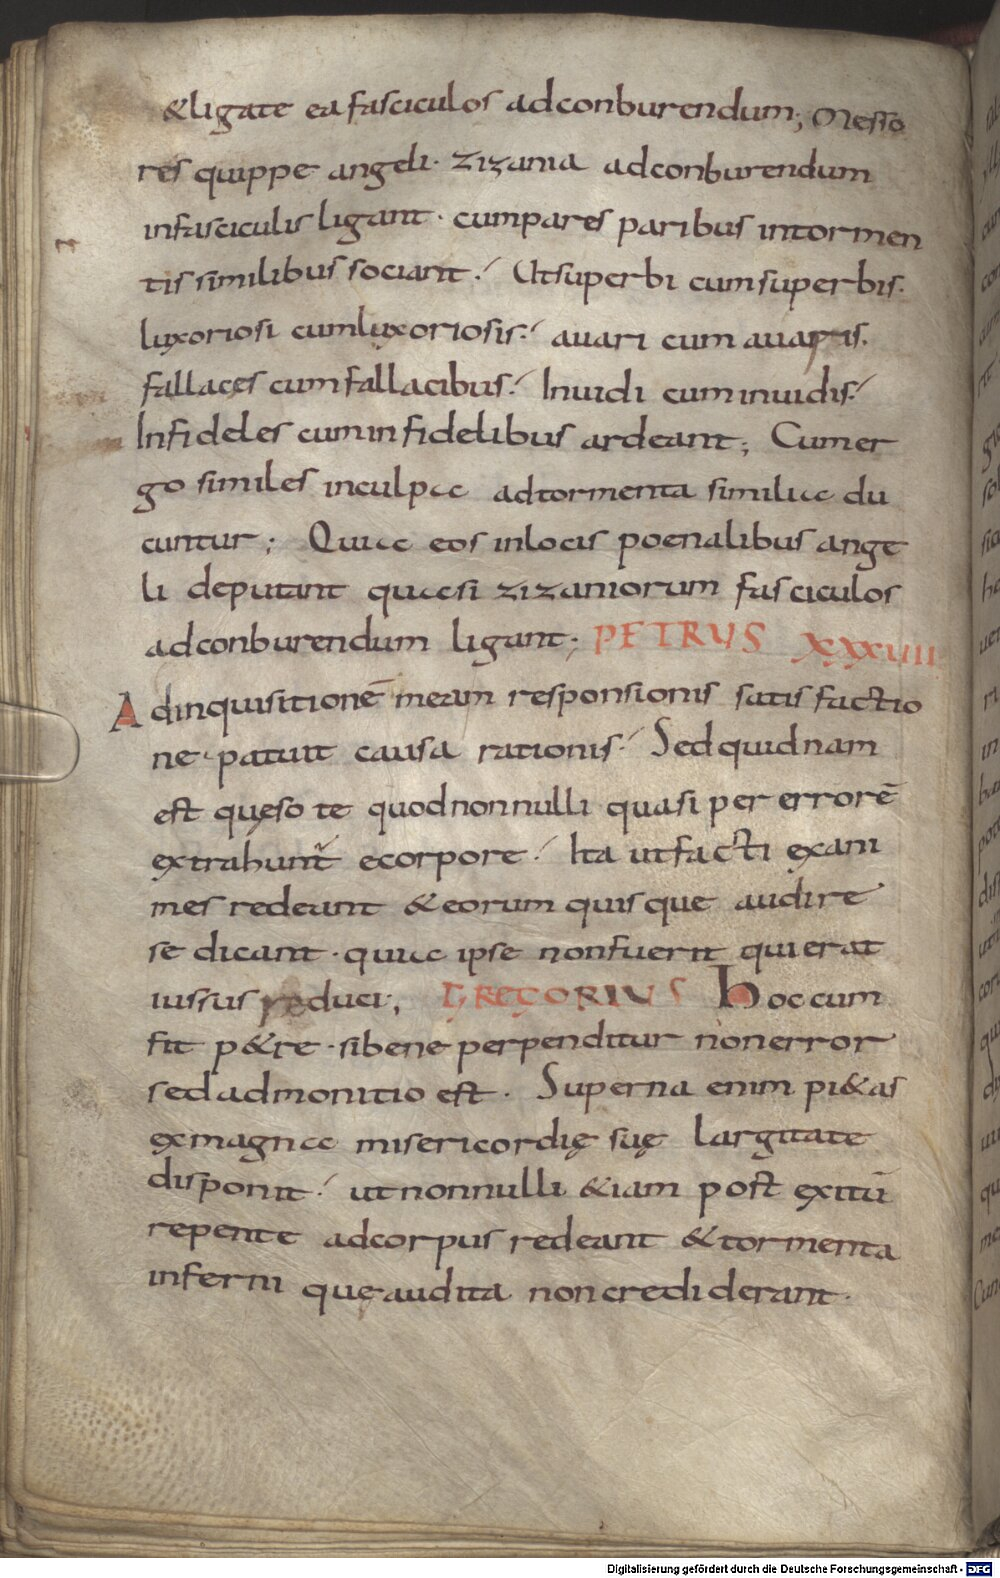 &ligate ea fasciculos adconburendum; Messo
res quippe angeli· zizania adconburendum
infasciculis ligant· cumpares paribus intormen
tis similibus sociant! Utsuperbi cumsuperbis.
luxoriosi cumluxoriosis! auari cum auaris.
fallaces cumfallacibus! Inuidi cuminuidis!
Infideles cuminfidelibus ardeant; Cumer
go similes inculpa adtormenta similia du
cuntur; Quia eos inlocis poenalibus ange
li deputant quasi zizaniorum fasciculos
adconburendum ligant; PETRUS XXXVIII
Adinquisitionē meam responsionis satisfactio
ne patuit causa rationis! Sedquidnam
est quęso te quodnonnulli quasi per errorē
extrahunt̄ ecorpore! Ita utfacti exani
mes redeant &eorum quisque audire
se dicant· quia ipse nonfuerit quierat
iussus reduci; GREGORIUS Hoccum
fit p&re· sibene perpenditur nonerror
sedadmonitio est. Superna enim pi&as
exmagna misericordię suę largitate
disponit! utnonnulli &iam post exitū
repente adcorpus redeant &tormenta
inferni que audita noncrediderant·
Digitalisierung gefördert durch die Deutsche Forschungsgemeinschaft - DFG